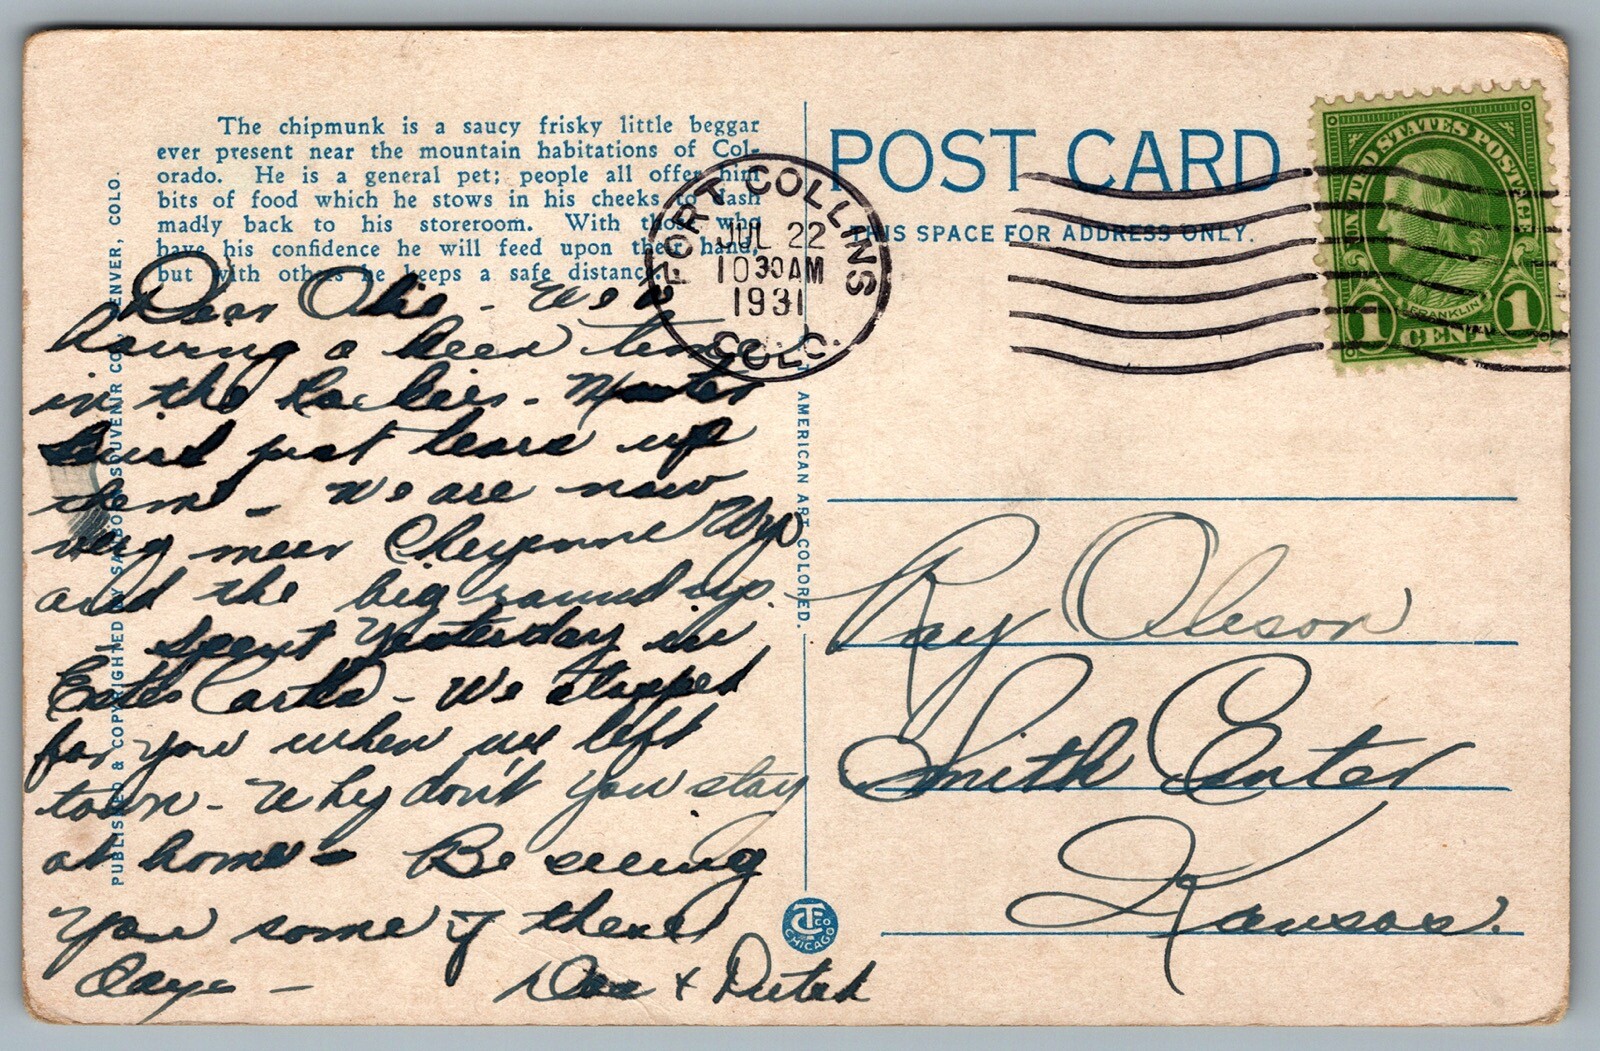 The chipmunk is a saucy frisky little beggar
ever present near the mountain habitations of Col-
orado. He is a general pet; people all offer him
bits of food which he stows in his cheeks to dash
madly back to his storeroom. With those who
have his confidence he will feed upon their hand,
but with others he keeps a safe distance.
PUBLISHED & COPYRIGHTED BY SANBORN SOUVENIR CO., DENVER, COLO.
Dear Olie - We
having a keen time
in the Rockies -
just tears up
them - We are now
very near Cheyenne Wyo
and the big round up.
Spent Yesterday in
Estes Park - We stopped
for you when we left
town - Why don't you stay
at home - Be seeing
you some of these
Days -
Doc & Dutch
FORT COLLINS
JUL 22
10 30 AM
1931
COLO.
POST CARD
THIS SPACE FOR ADDRESS ONLY.
AMERICAN ART COLORED.
CT CO
CHICAGO
UNITED STATES POSTAGE
FRANKLIN
1 CENT 1
Ray Oleson
Smith Center
Kansas.